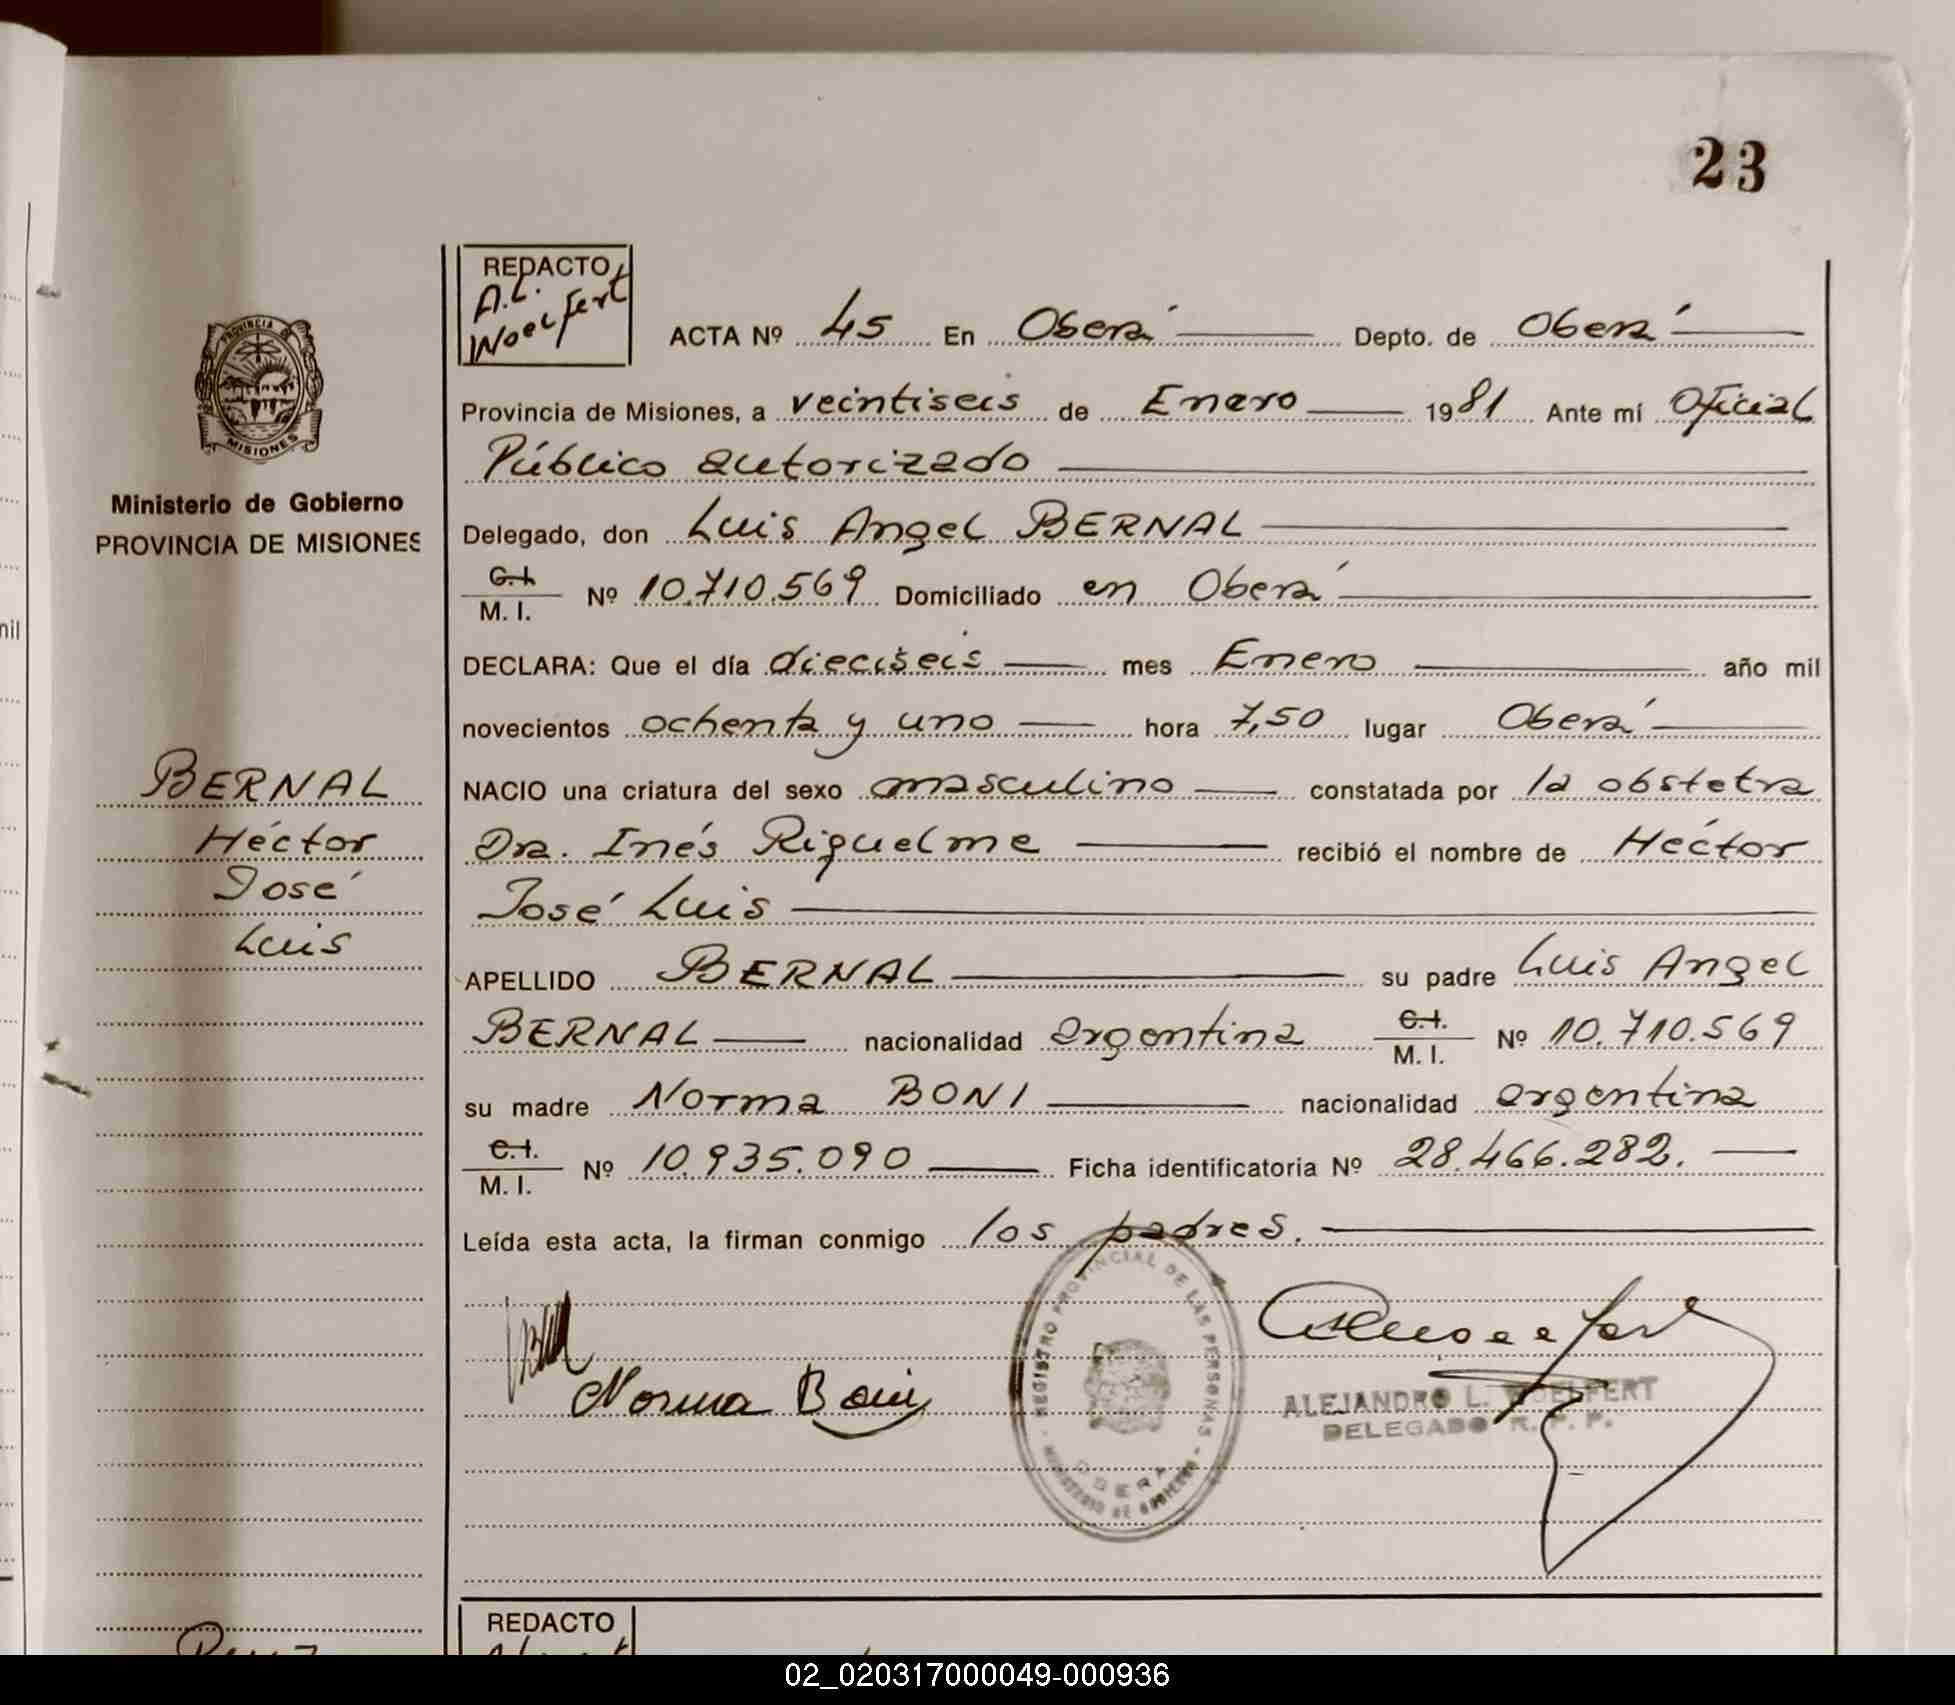 23
REDACTO
A.L.
Woelfert
PROVINCIA DE
MISIONES
Ministerio de Gobierno
PROVINCIA DE MISIONES
ACTA Nº 45 En Oberá Depto. de Oberá
Provincia de Misiones, a veintiseis de Enero 1981 Ante mí Oficial
Público autorizado
Delegado, don Luis Angel BERNAL
C.I.
M. I. Nº 10.710.569 Domiciliado en Oberá
DECLARA: Que el día dieciseis mes Enero año mil
novecientos ochenta y uno hora 7,50 lugar Oberá
BERNAL
Héctor
José
Luis
NACIO una criatura del sexo masculino constatada por la obstetra
Dra. Inés Riquelme recibió el nombre de Héctor
José Luis
APELLIDO BERNAL su padre Luis Angel
BERNAL nacionalidad argentina C.I. M. I. Nº 10.710.569
su madre Norma BONI nacionalidad argentina
C.I.
M. I. Nº 10.935.090 Ficha identificatoria Nº 28.466.282.
Leída esta acta, la firman conmigo los padres.
Norma Boni
REGISTRO PROVINCIAL DE LAS PERSONAS
OBERA
MINISTERIO DE GOBIERNO
ALEJANDRO L. WOELFERT
DELEGADO R. P. P.
REDACTO
mil
02_020317000049-000936